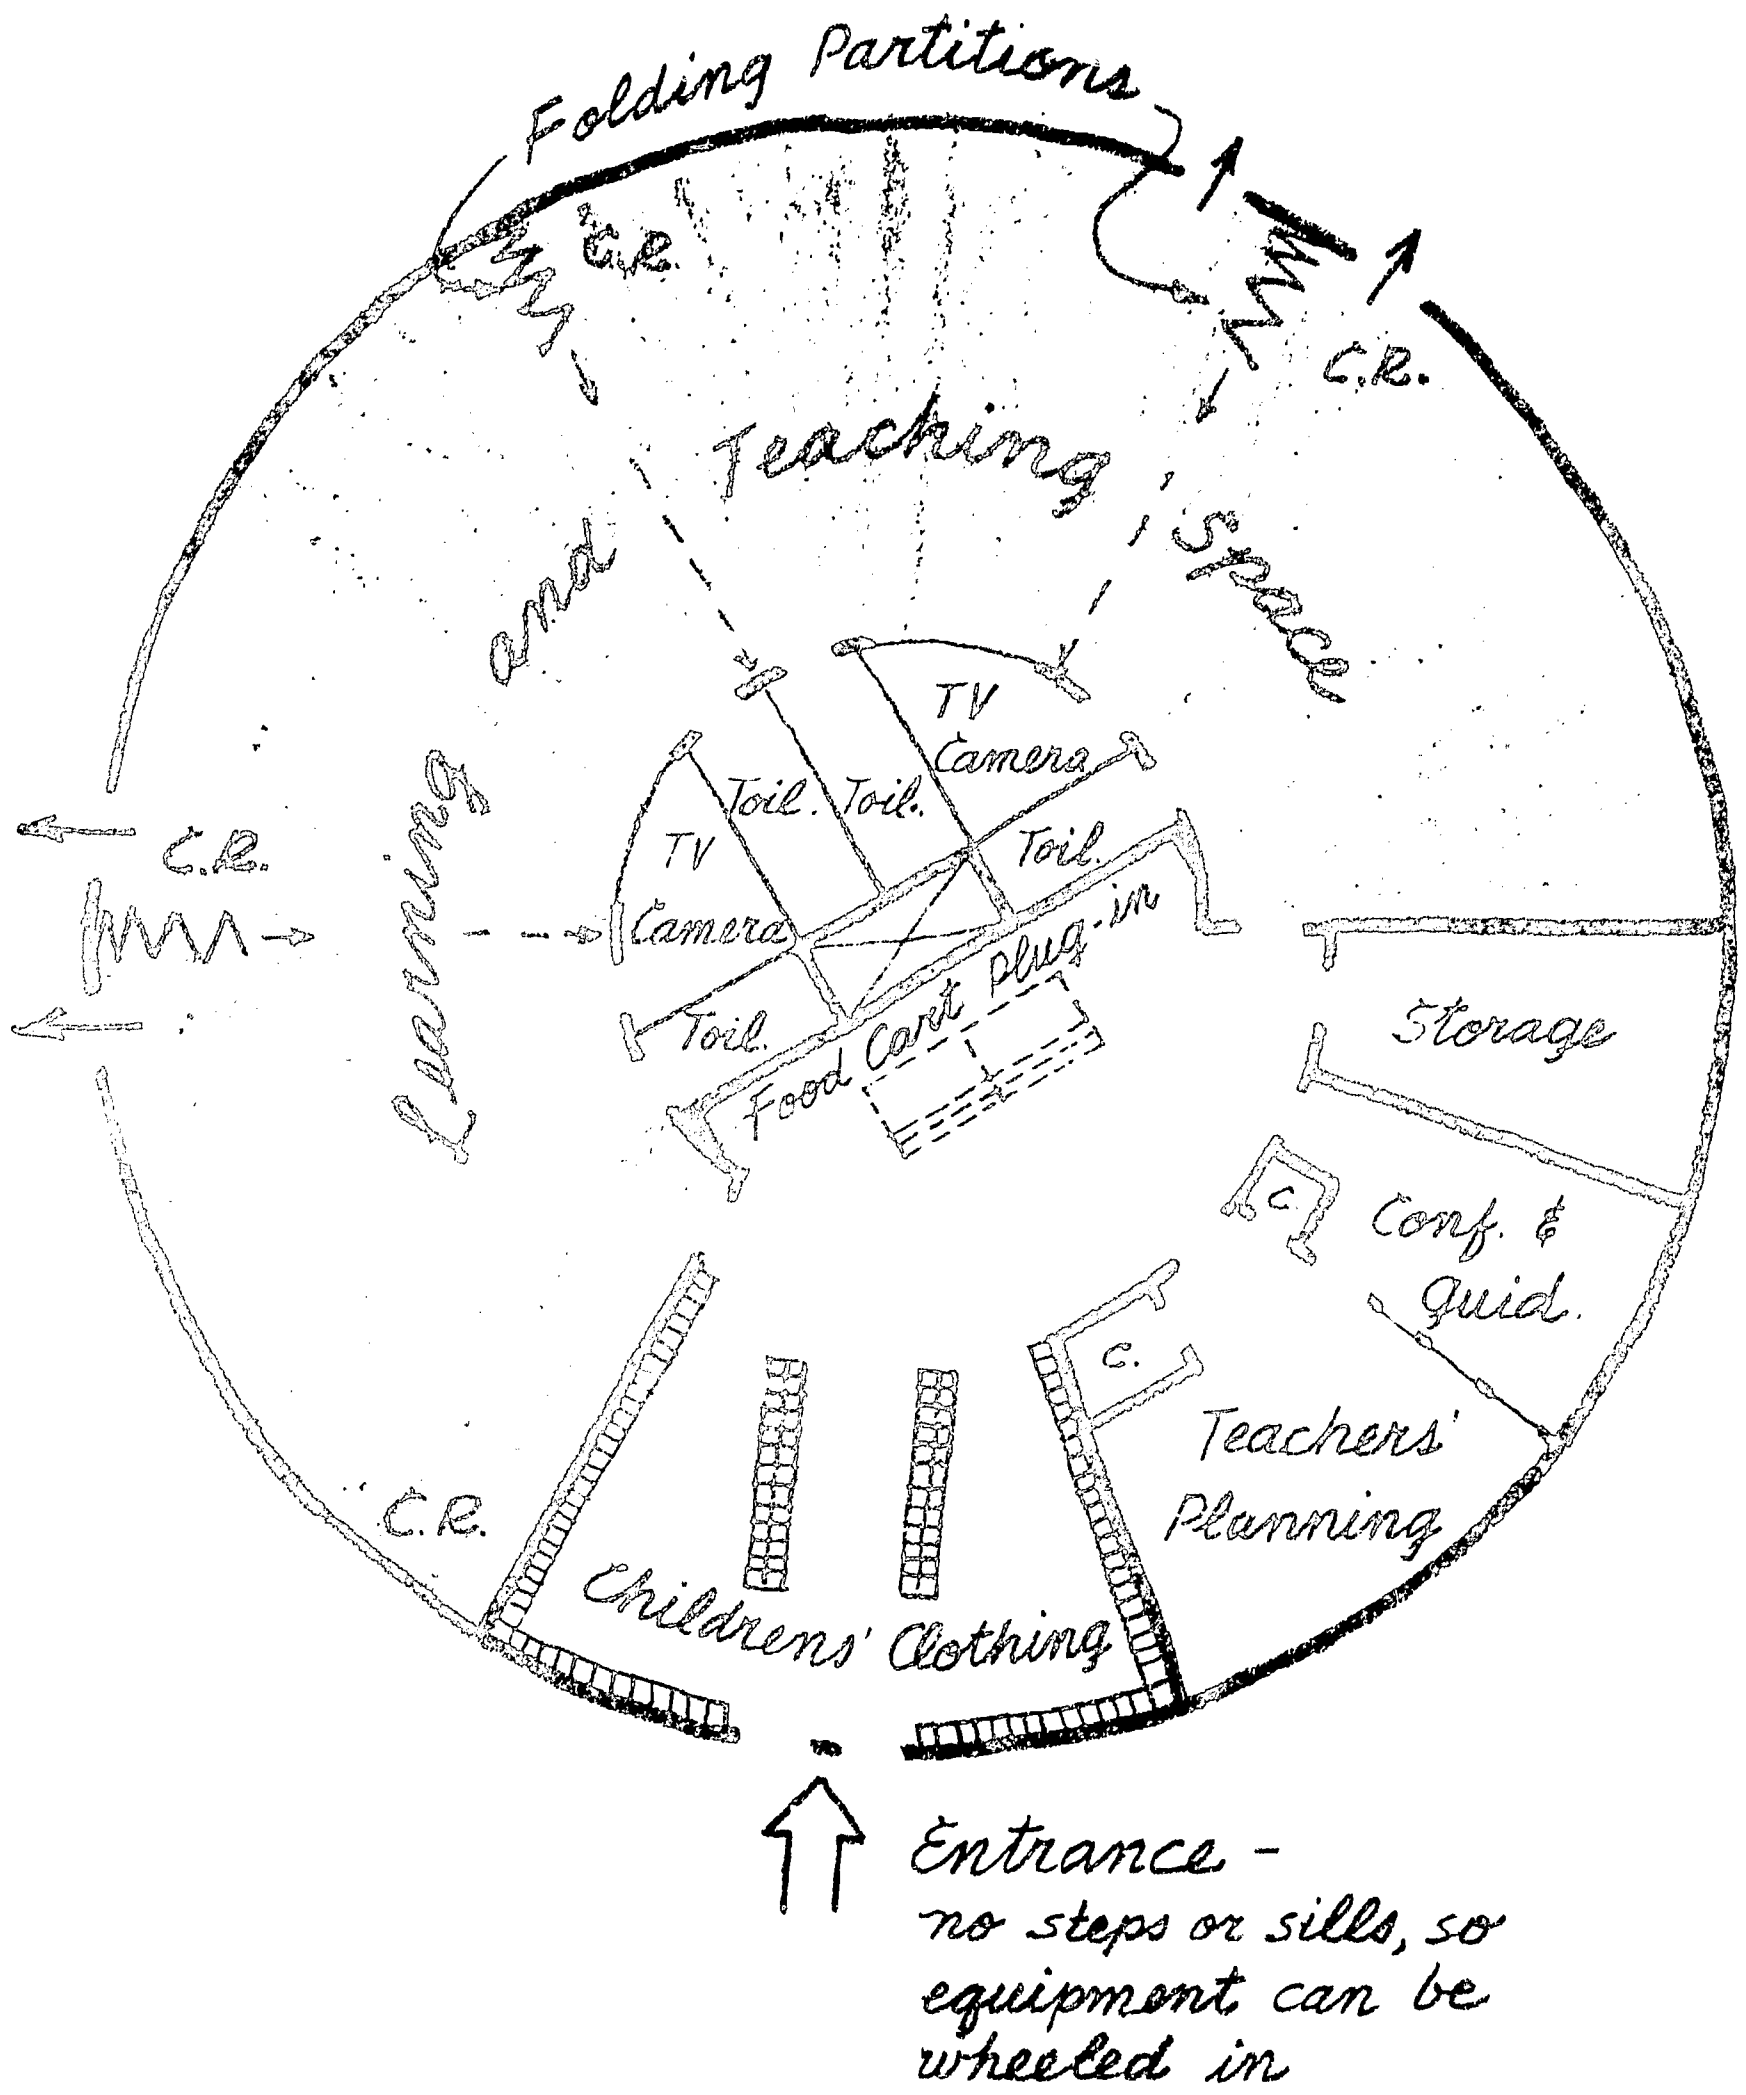 Folding Partitions
C.R.
C.R.
Learning and Teaching Space
TV
Camera
Toil. Toil.
Toil.
C.R.
TV
Camera
Toil.
Food Cart plug-in
Storage
C.
Conf. &
Guid.
C.
Teachers'
Planning
C.R.
Childrens' Clothing
Entrance -
no steps or sills, so
equipment can be
wheeled in